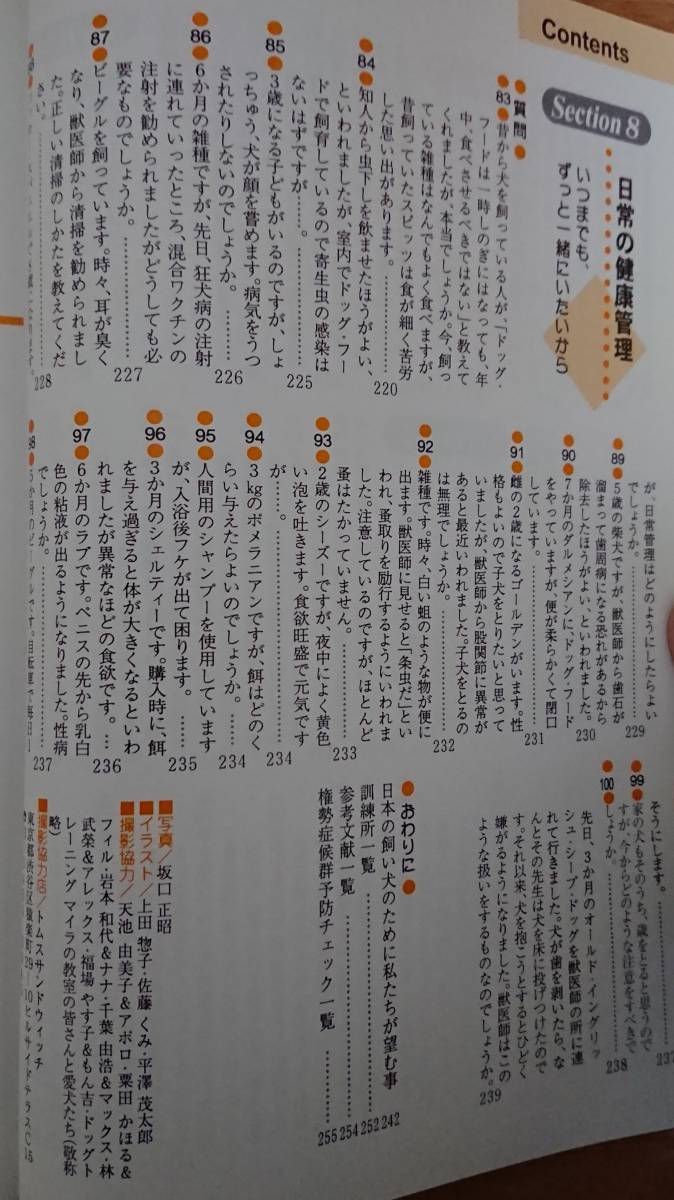 Contents
Section 8
日常の健康管理
いつまでも、
ずっと一緒にいたいから
●質問●
83●昔から犬を飼っている人が、「ドッグ・
フードは一時しのぎにはなっても、年
中、食べさせるべきではない」と教えて
くれましたが、本当でしょうか。今、飼っ
ている雑種はなんでもよく食べますが、
昔飼っていたスピッツは食が細く苦労
した思い出があります。……220
●84●知人から虫下しを飲ませたほうがよい、
といわれましたが、室内でドッグ・フー
ドで飼育しているので寄生虫の感染は
ないはずですが……。……225
●85●3歳になる子どもがいるのですが、しょ
っちゅう、犬が顔を嘗めます。病気をうつ
されたりしないのでしょうか。……226
●86●6か月の雑種ですが、先日、狂犬病の注射
に連れていったところ、混合ワクチンの
注射を勧められましたがどうしても必
要なものでしょうか。……227
●87●ビーグルを飼っています。時々、耳が臭く
なり、獣医師から清掃を勧められまし
た。正しい清掃のしかたを教えてくだ
さい。……228
が、日常管理はどのようにしたらよい
でしょうか。……229
●89●5歳の柴犬ですが、獣医師から歯石が
溜まって歯周病になる恐れがあるから
除去したほうがよい、といわれました。……230
●90●7か月のダルメシアンに、ドッグ・フード
をやっていますが、便が柔らかくて閉口
しています。……231
●91●雌の2歳になるゴールデンがいます。性
格もよいので子犬をとりたいと思って
いましたが、獣医師から股関節に異常が
あると最近いわれました。子犬をとるの
は無理でしょうか。……232
●92●雑種です。時々、白い蛆のような物が便に
出ます。獣医師に見せると「条虫だ」とい
われ、蚤取りを励行するようにいわれま
した。注意しているのですが、ほとんど
蚤はたかっていません。……233
●93●2歳のシーズーですが、夜中によく黄色
い泡を吐きます。食欲旺盛で元気です
が……。……234
●94●3kgのポメラニアンですが、餌はどのく
らい与えたらよいのでしょうか。……234
●95●人間用のシャンプーを使用しています
が、入浴後フケが出て困ります。……235
●96●3か月のシェルティーです。購入時に、餌
を与え過ぎると体が大きくなるといわ
れましたが異常なほどの食欲です。…236
●97●6か月のラブです。ペニスの先から乳白
色の粘液が出るようになりました。性病
でしょうか。……237
●98●5か月のビーグルです。自転車で毎日1
そうにします。……237
●99●家の犬もそのうち、歳をとると思うので
すが、今からどのような注意をすべきで
しょうか。……238
●100●先日、3か月のオールド・イングリッ
シュ・シープ・ドッグを獣医師の所に連
れて行きました。犬が歯を剥いたら、な
んとその先生は犬を床に投げつけたので
す。それ以来、犬を抱こうとするとひどく
嫌がるようになりました。獣医師はこの
ような扱いをするものなのでしょうか。……239
●おわりに●
日本の飼い犬のために私たちが望む事……242
訓練所一覧……252
参考文献一覧……254
権勢症候群予防チェック一覧……255
■写真／坂口 正昭
■イラスト／上田 惣子・佐藤 くみ・平澤 茂太郎
■撮影協力／天池 由美子＆アポロ・粟田 かほる＆
フィル・岩本 和代＆ナナ・千葉 由浩＆マックス・林
武榮＆アレックス・福場 やす子＆もん吉・ドッグト
レーニング マイラの教室の皆さんと愛犬たち（敬称
略）
■撮影協力店／トムスサンドウィッチ
東京都渋谷区猿楽町29-10ヒルサイドテラスC15